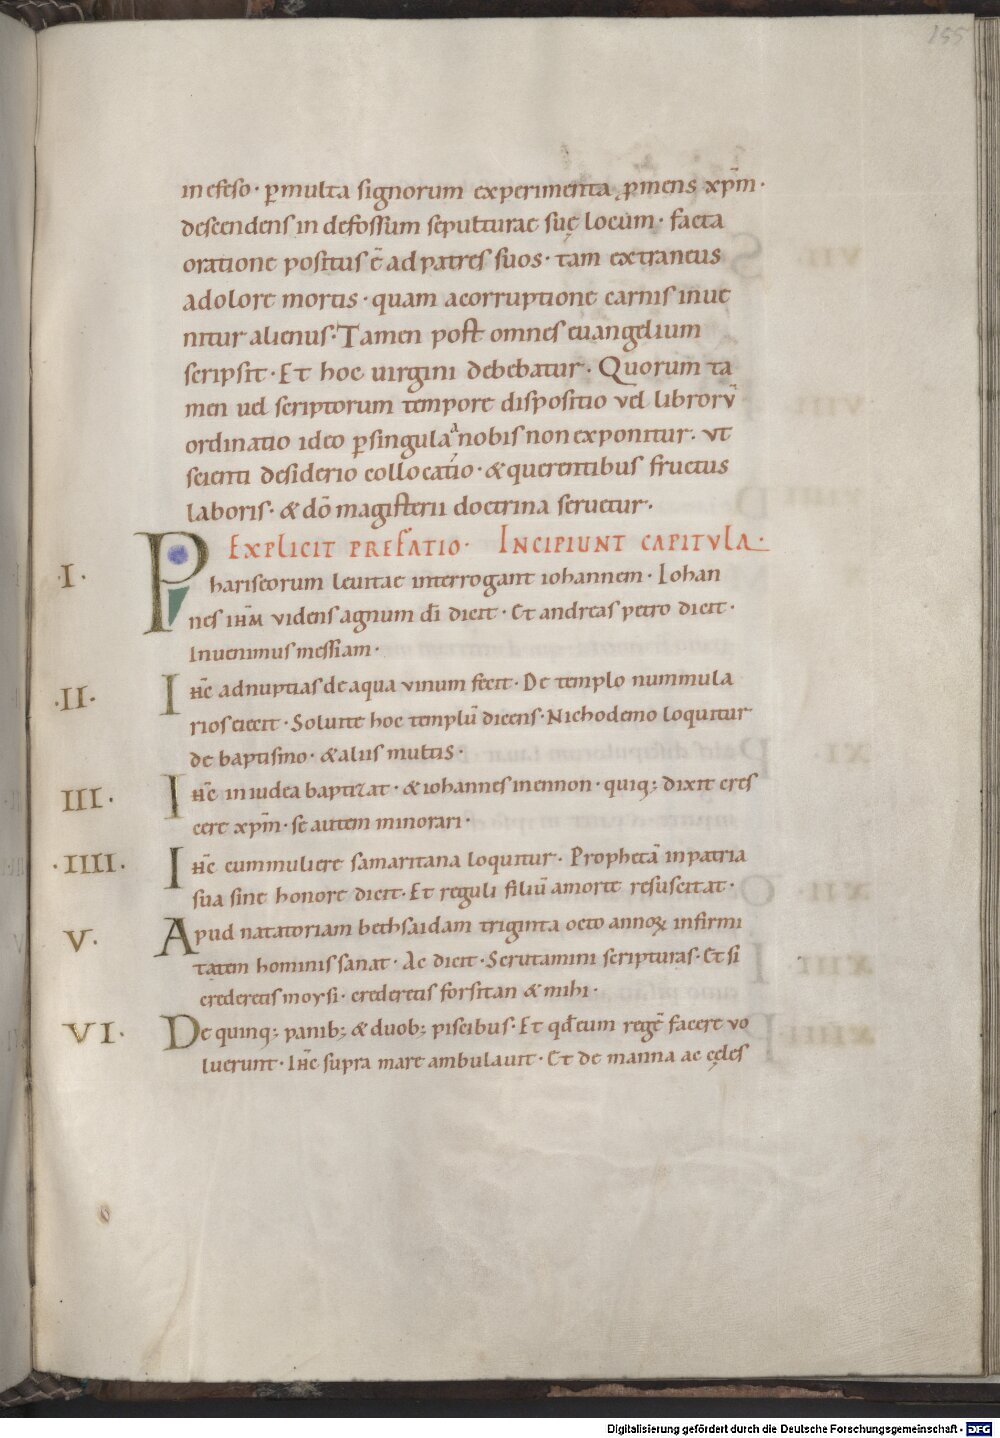 155
in efeso · p̲ multa signorum experimenta p̲mens xp̄m ·
descendens in defossum sepulturae suę locum · facta
oratione positus ē ad patres suos · tam extraneus
a dolore mortis · quam a corruptione carnis inue
nitur alienus · Tamen post omnes euangelium
scripsit · Et hoc uirgini debebatur · Quorum ta
men uel scriptorum tempore dispositio vel librorū
ordinatio ideo p̲ singula a nobis non exponitur · vt
scienti desiderio collocatio · & querentibus fructus
laboris · & dō magisterii doctrina seruetur ·
EXPLICIT PREFATIO · INCIPIUNT CAPITVLA ·
·I· Phariseorum leuitae interrogant iohannem · Iohan
nes ihm̄ videns agnum dī dicit · Et andreas petro dicit ·
Inuenimus messiam ·
·II· Ihc̄ ad nuptias de aqua vinum fecit · De templo nummula
rios eiecit · Soluite hoc templū dicens · Nichodemo loquitur
de baptismo · & aliis multis ·
III · Ihc̄ in iudea baptizat · & iohannes in ennon · quiq; dixit cres
cere xp̄m · se autem minorari ·
·IIII· Ihc̄ cum muliere samaritana loquitur · Prophetā in patria
sua sine honore dicit · Et reguli filiū a morte resuscitat ·
V · Apud natatoriam bethsaidam triginta octo annoꝝ infirmi
tatem hominis sanat · Ac dicit · Scrutamini scripturas · Et si
crederetis moysi · crederetis forsitan & mihi ·
VI · De quinq; panib; & duob; piscibus · Et qd̄ eum regē facere vo
luerunt · Ihc̄ supra mare ambulauit · Et de manna ac cęles
Digitalisierung gefördert durch die Deutsche Forschungsgemeinschaft - DFG